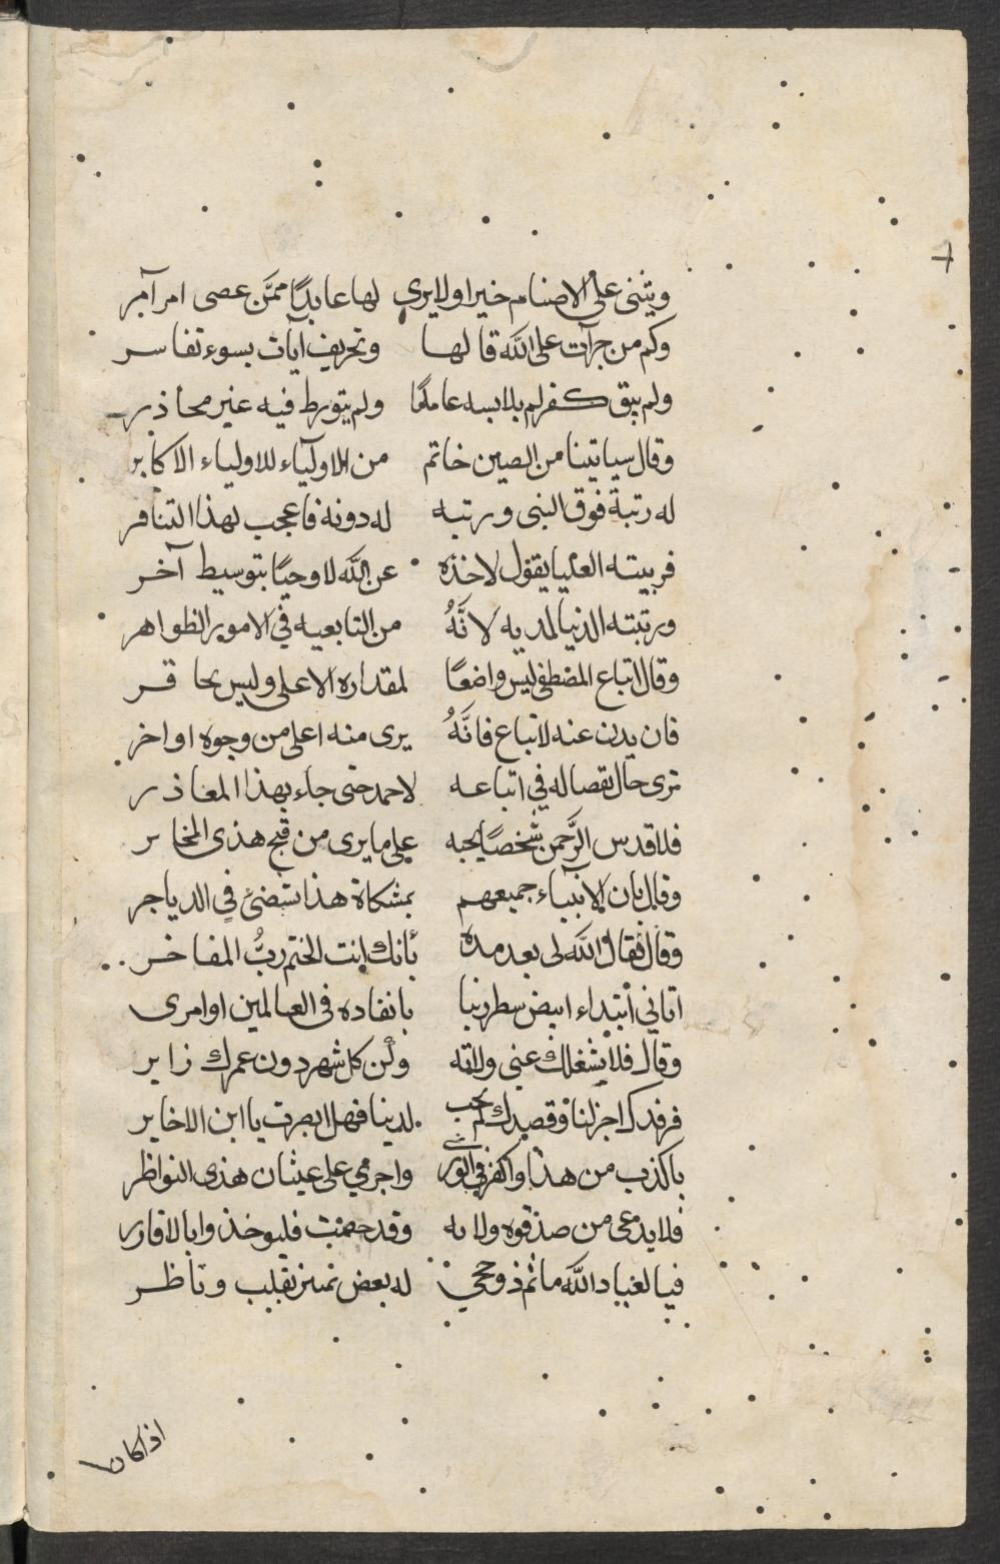 ويثنى على الاصنام خيرا ولا يرى لها عابدًا ممَّن عصى امر آمر
وكم من جرآت على الله قالها وتحريف ايات بسوء تفاسر
ولم يبق كفر لم يلابسه عامدًا ولم يتورط فيه غير محاذر
وقال سياتينا من الصين خاتم من الاوليآء للاولياء الاكابر
له رتبة فوق النبى ورتبه له دونه فاعجب لهذا التنافر
فرتبته العليا يقول لاخذه عن الله لا وحيًا بتوسيط آخر
ورتبته الدنيا لديه لانَّهُ من التابعيه في الامور الظواهر
وقال اتباع المصطفى ليس واضعًا لمقداره الاعلى وليس بحاقر
فان يدن عنه لاتباع فانَّهُ يرى منه اعلى من وجوه اواخر
ترى حال نقصا له في اتباعه لاحمد حتى جاء بهذا المعاذر
فلا قدس الرَّحمن شخصًا يحبه على ما يرى من قبح هذى المخابر
وقال بان الانبياء جميعهم بمشكاة هذا تستضئ في الدياجر
وقال فقال الله لى بعد مده بأنك انت الختم ربُّ المفاخر
اتانى ابتداء ابيض سطر ربنا بانفاده في العالمين اوامرى
وقال فلا يشغلك عنى ولاته وكن كل شهر دون عمرك زاير
فرفدك اجزلنا وقصدك لم يخب لدينا فهل ابصرت يا ابن الاخاير
باكذب من هذا واكفر في الورى واجرمى على غشان هذى النواظر
فلا يدعى من صدقوه ولايه وقد ختمت فليوخذوا بالاقارر
فيا لعباد الله ما ثم ذو حجى له بعض تمييز بقلب وناظر
اذا كان